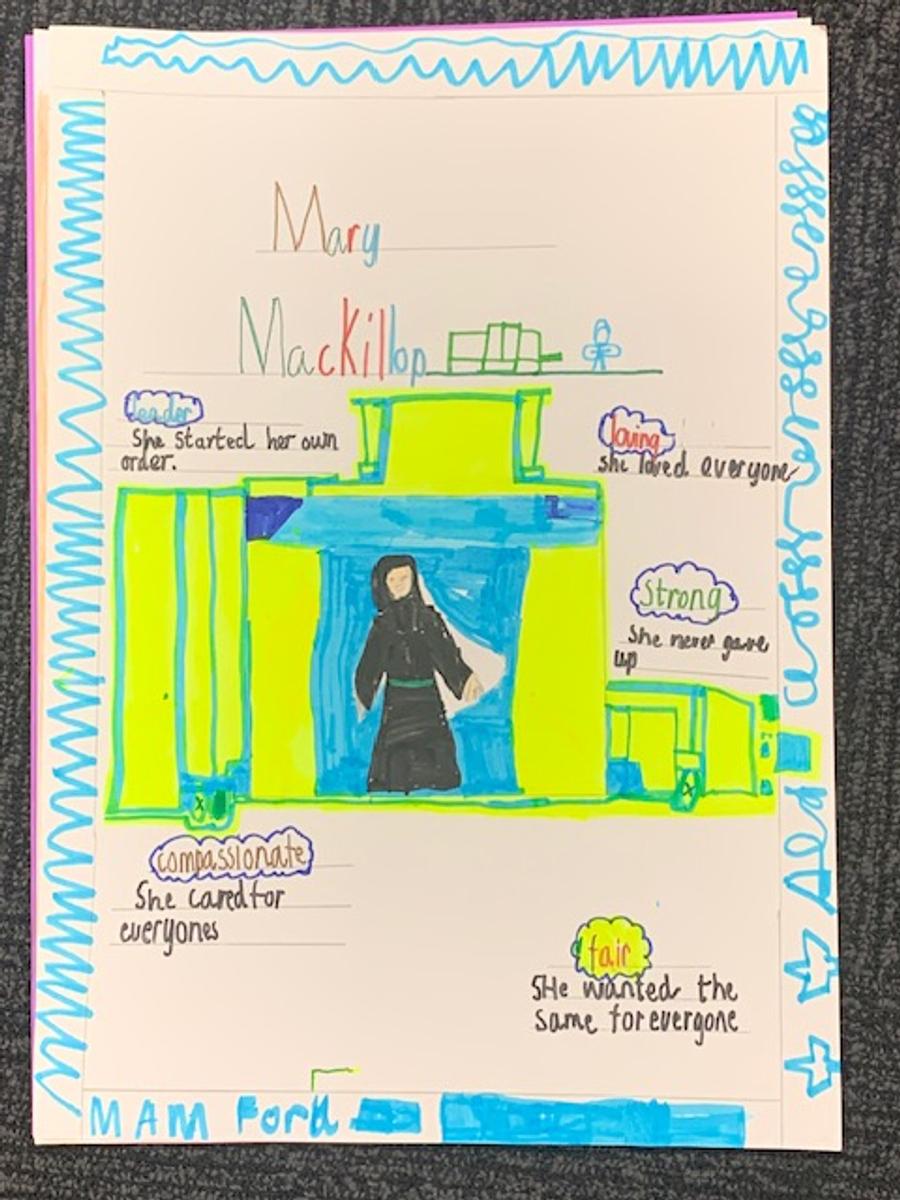 Mary
MacKillop
leader
She started her own
order.
loving
she loved everyone
Strong
She never gave
up
compassionate
She cared for
everyones
fair
SHe wanted the
same for everyone
MAM